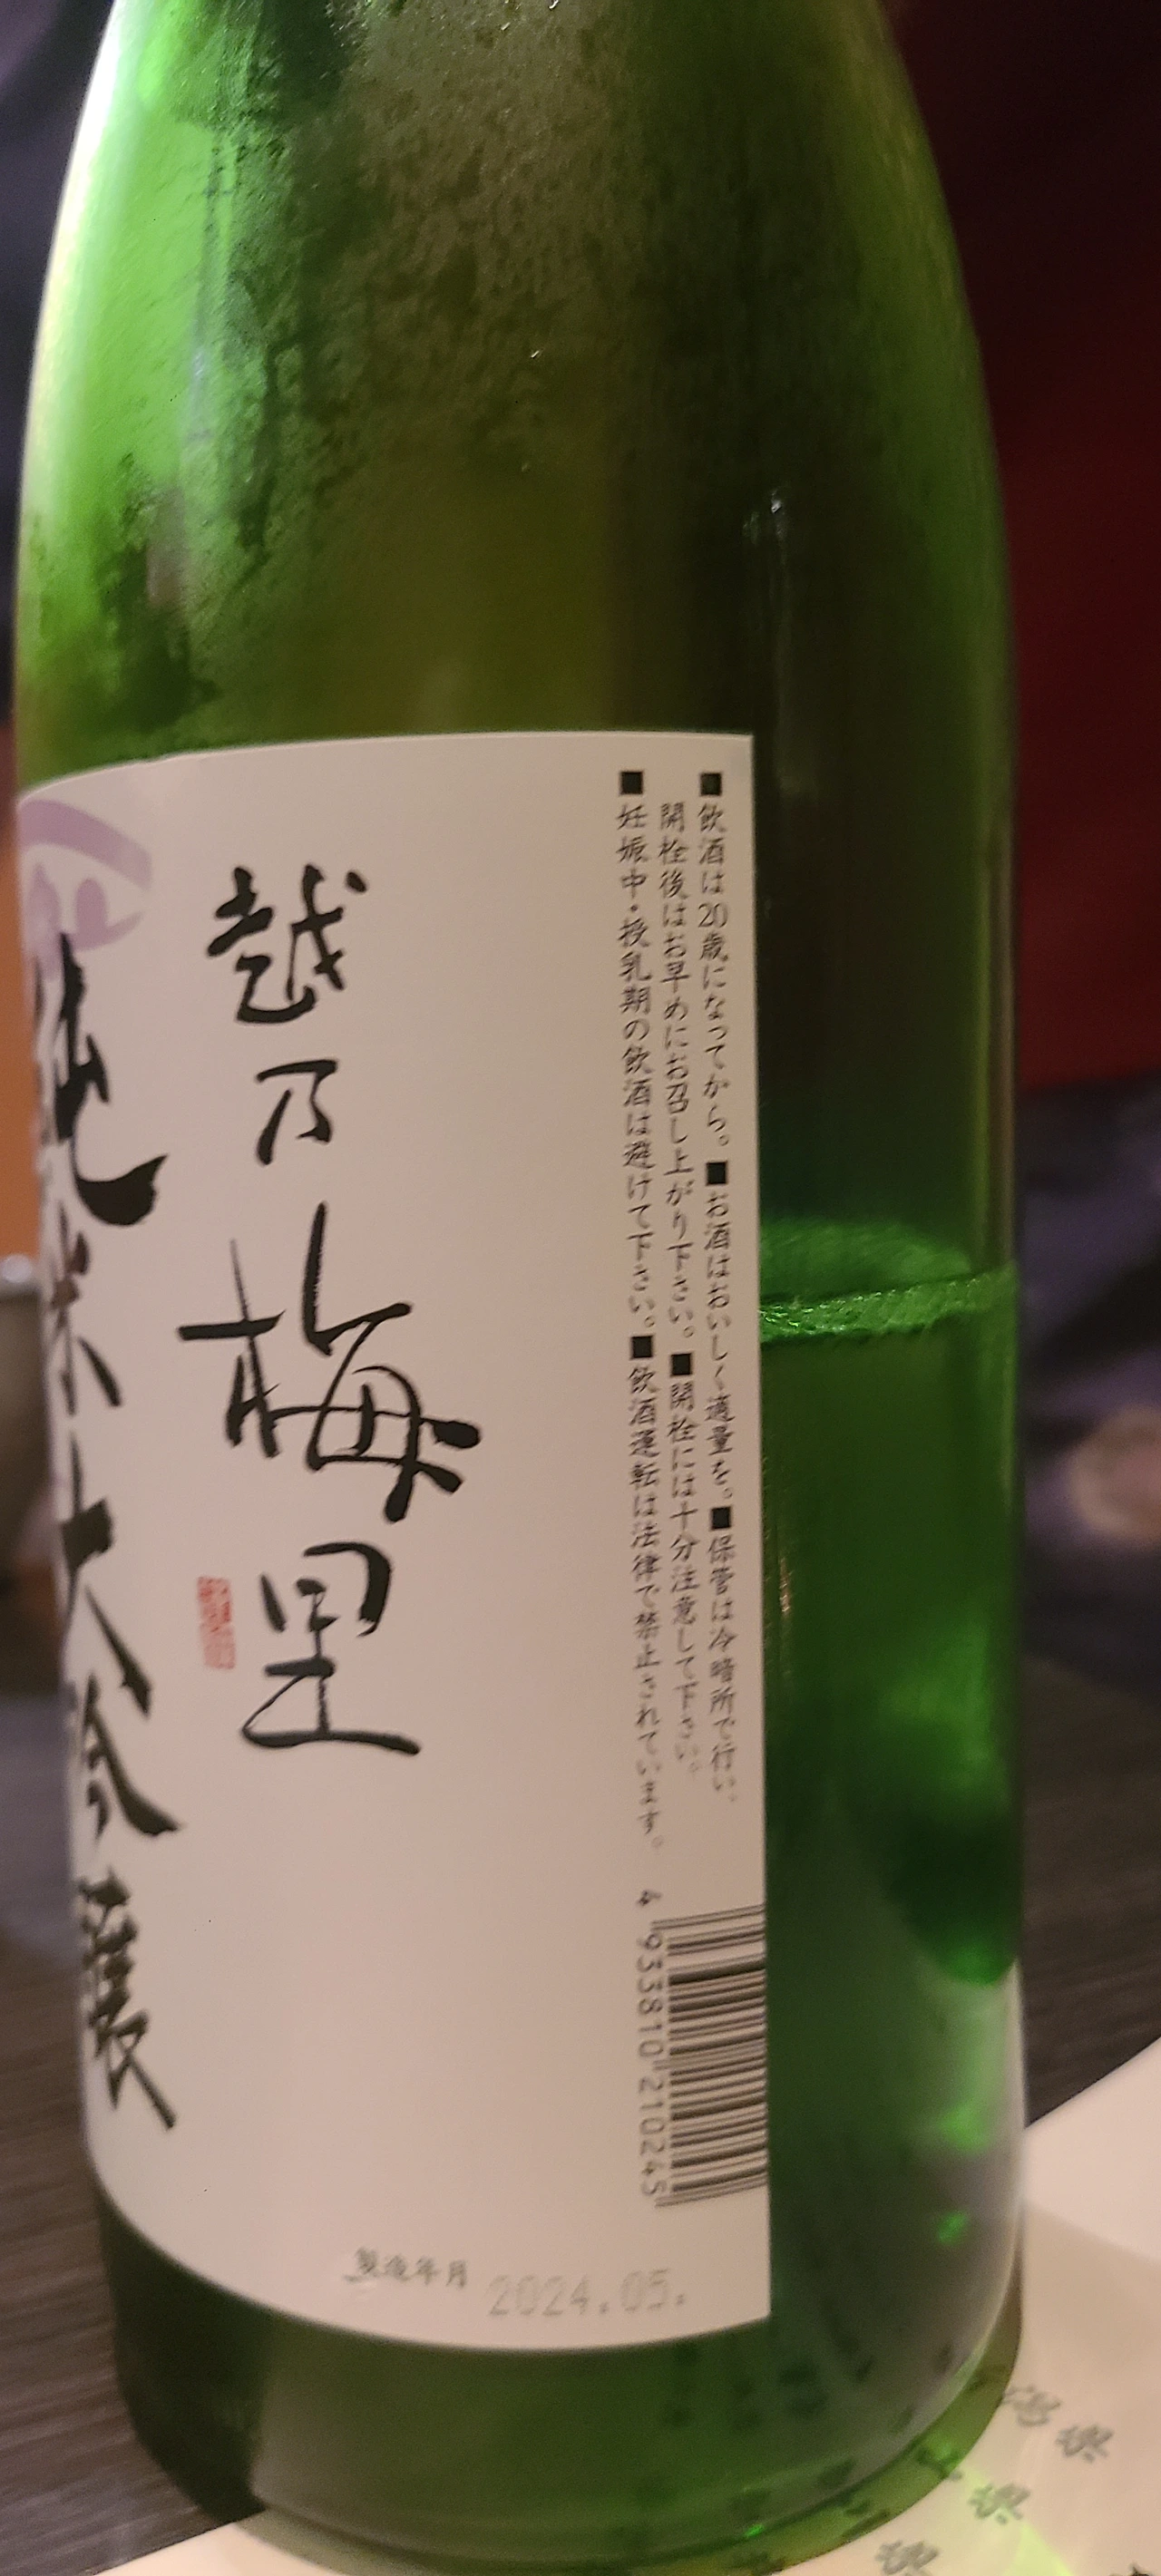 ■飲酒は20歳になってから。■お酒はおいしく適量を。■保管は冷暗所で行い、
開栓後はお早めにお召し上がり下さい。■開栓には十分注意して下さい。
■妊娠中・授乳期の飲酒は避けて下さい。■飲酒運転は法律で禁止されています。
越乃梅里
純米大吟醸
4 933810 210245
製造年月 2024.05.